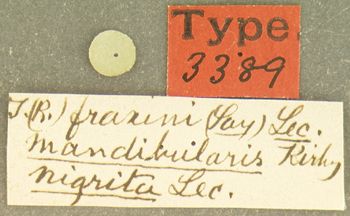 Type
3389
T.(R.) fraxini (Say) Lec.
mandibularis Kirby
nigrita Lec.